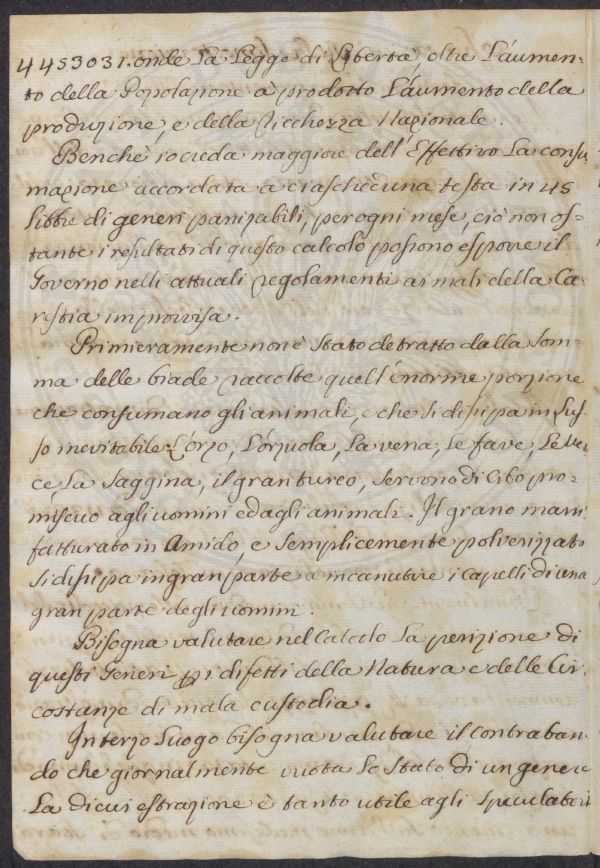 4453031. onde la Legge di Libertà oltre L'aumen-
to della Popolazione à prodotto L'aumento della
produzione, e della Ricchezza Nazionale.
Benchè io creda maggiore dell'Effettivo La consu
mazione accordata a ciaschèduna testa in 45
libbre di generi panizabili, per ogni mese, ciò non os=
tante i resultati di questo calcolo possono esporre il
Governo nelli attuali regolamenti ai mali della Ca
restia improvvisa.
Primieramente non è stato detratto dalla som
ma delle biade raccolte quell'enorme porzione
che consumano gli animali, e che si disipa in Lus
so inevitabile. L'orzo, L'orzuola, La vena, Le fave, Le ve
ce, La Saggina, il gran turco, servono di Cibo pro=
miscuo agli uomini ed agli animali. Il grano mani
fatturato in Amido, e semplicemente polverizzato
si disipa in gran parte a incanutire i Capelli di una
gran parte degli uomini.
Bisogna valutare nel Calcolo La perizione di
questi Generi p i difetti della Natura e delle Cir
costanze di mala custodia.
In terzo Luogo bisogna valutare il Contraban
do che giornalmente vuota Lo Stato di un genere
La di cui estrazione è tanto utile agli Speculatori